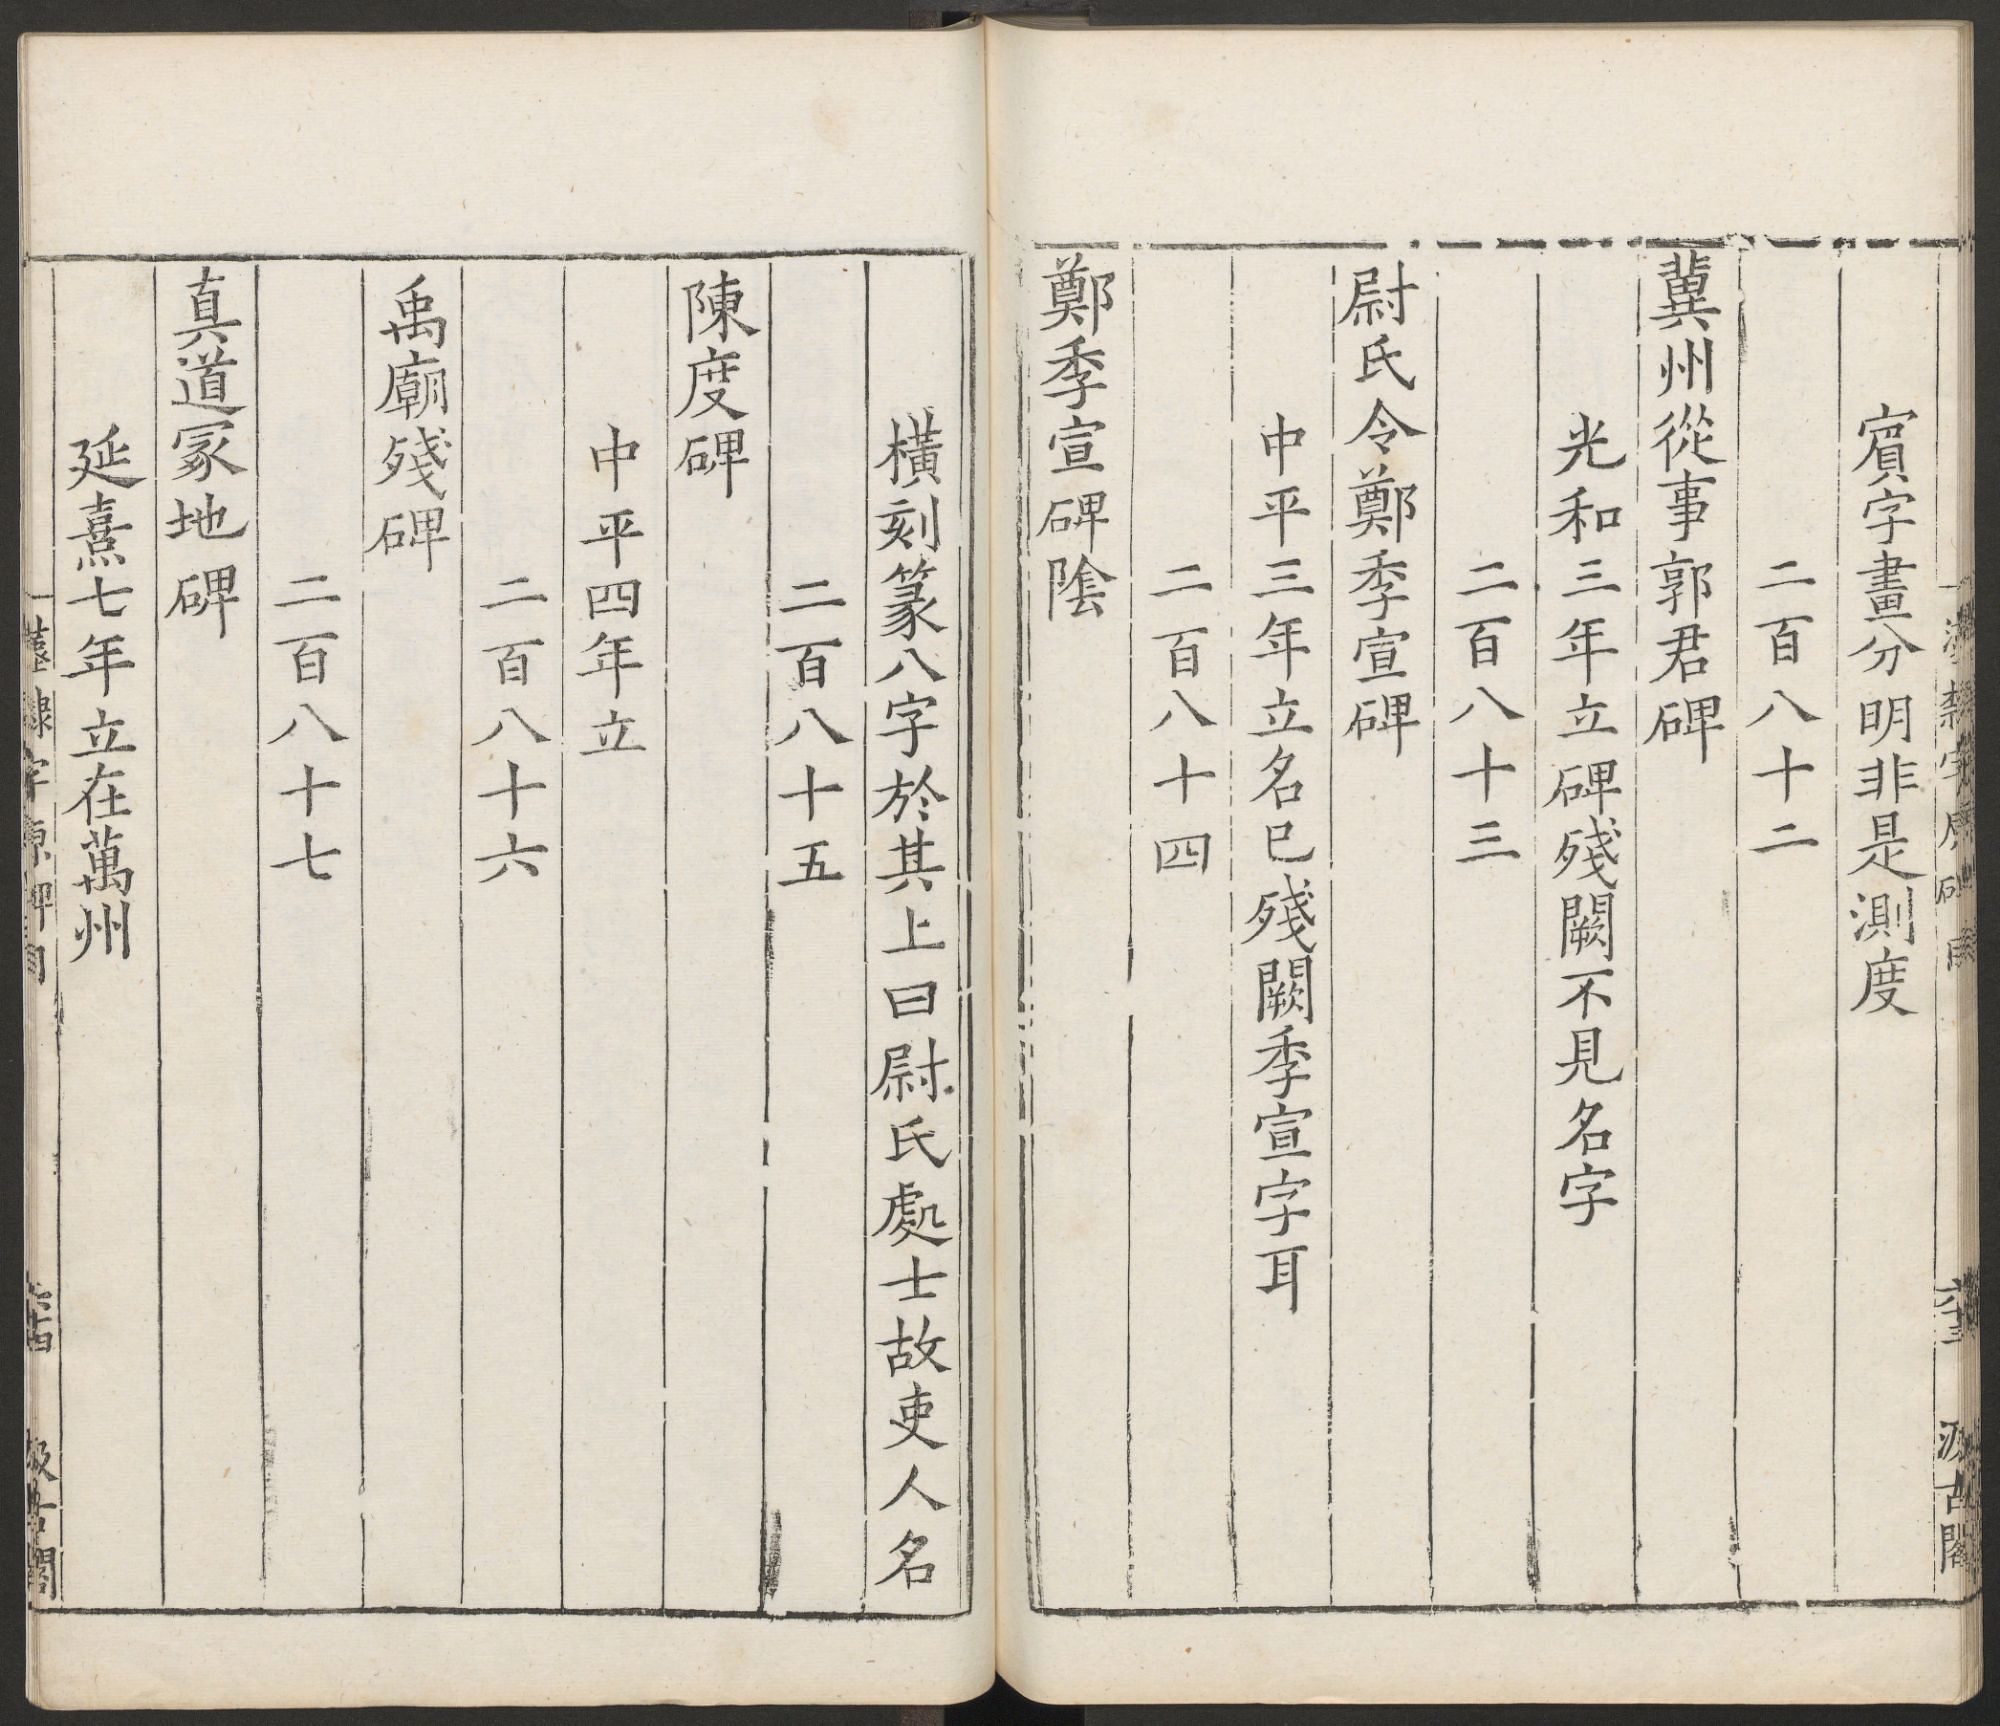 賔字畫分明非是測度
二百八十二
冀州從事郭君碑
光和三年立碑殘闕不見名字
二百八十三
尉氏令鄭季宣碑
中平三年立名已殘闕季宣字耳
二百八十四
鄭季宣碑陰
橫刻篆八字於其上曰尉氏處士故吏人名
二百八十五
陳度碑
中平四年立
二百八十六
禹廟殘碑
二百八十七
真道冢地碑
延熹七年立在萬州
隸字原碑目
六十四
汲古閣